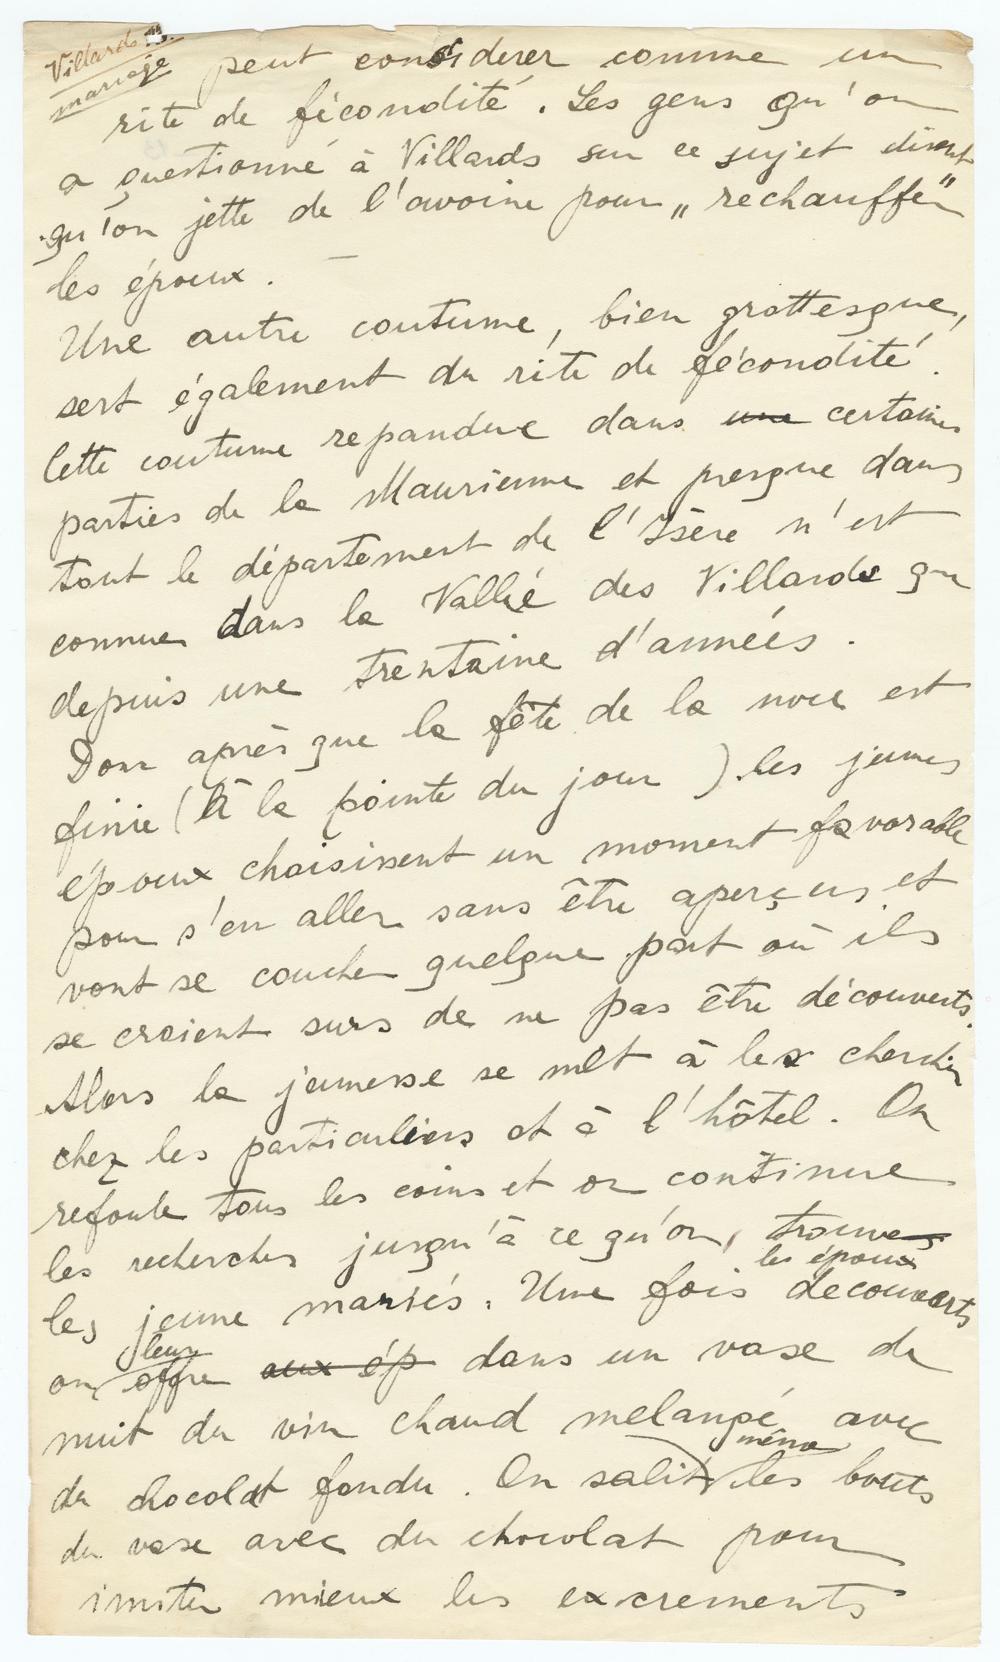 Villards
mariage
peut considerer comme un
rite de fécondité. Les gens qu'on
a questionné à Villards sur ce sujet disent
qu'on jette de l'avoine pour „rechauffer"
les époux.
Une autre coutume, bien grottesque,
sert également du rite de fécondité.
Cette coutume repandue dans une certaines
parties de la Maurienne et presque dans
tout le département de l'Isère n'est
connue dans la Vallée des Villards que
depuis une trentaine d'années.
Donc après que la fête de la noce est
finie (à la pointe du jour) les jeunes
époux choisissent un moment favorable
pour s'en aller sans être aperçus et
vont se coucher quelque part où ils
se croient surs de ne pas être découverts.
Alors la jeunesse se met à les chercher
chez les particuliers et à l'hôtel. On
refoule tous les coins et on continue
les recherches jusqu'à ce qu'on trouve
les jeune mariés. Une fois les époux découverts
on leur offre aux ép dans un vase de
nuit du vin chaud melangé avec
du chocolat fondu. On salit même les bouts
du vase avec du chocolat pour
imiter mieux les excrements